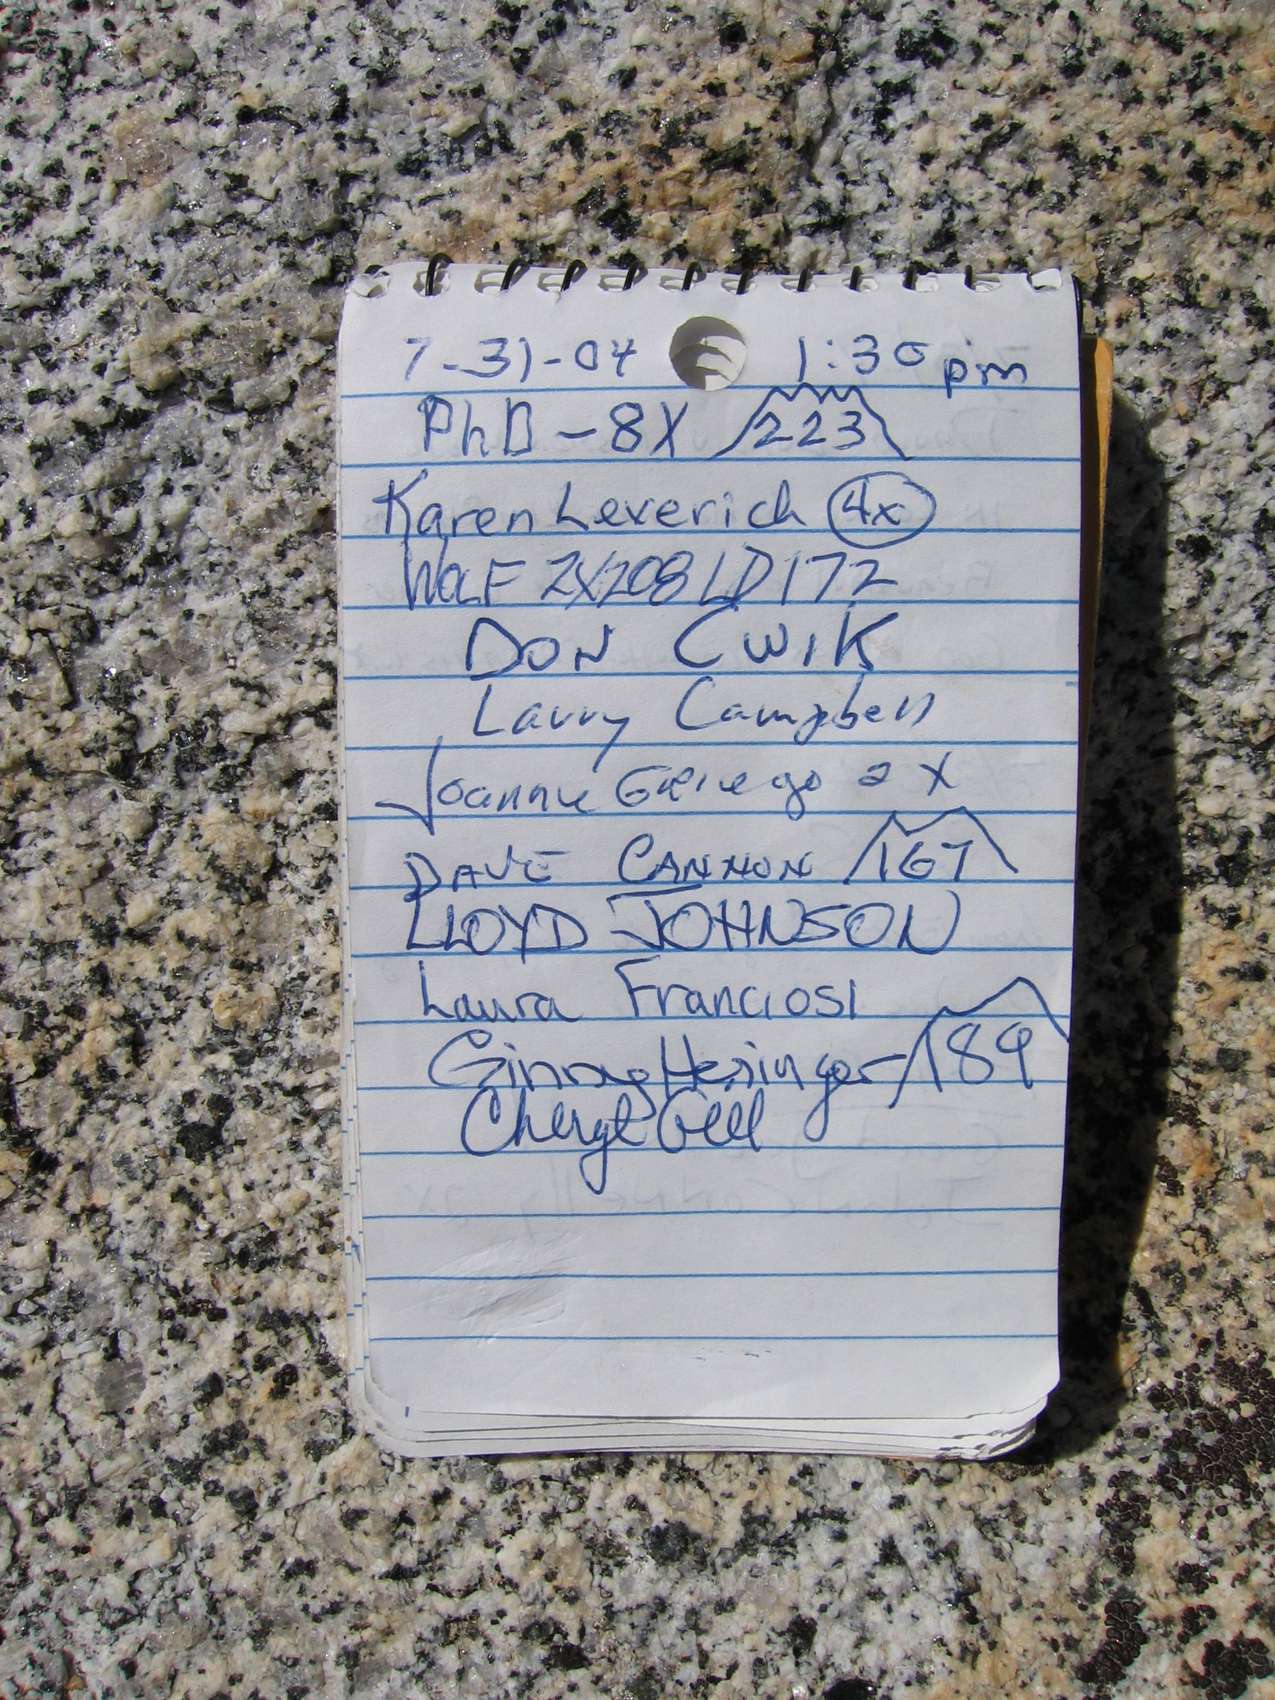 7-31-04 1:30 pm
PhD - 8X 223
Karen Leverich 4x
WOLF 2X208 LD172
DON CWIK
Larry Campbell
Joanne Griego 2X
DAVE CANNON 167
LLOYD JOHNSON
Laura Franciosi
Ginny Heringer 189
Cheryl Gell